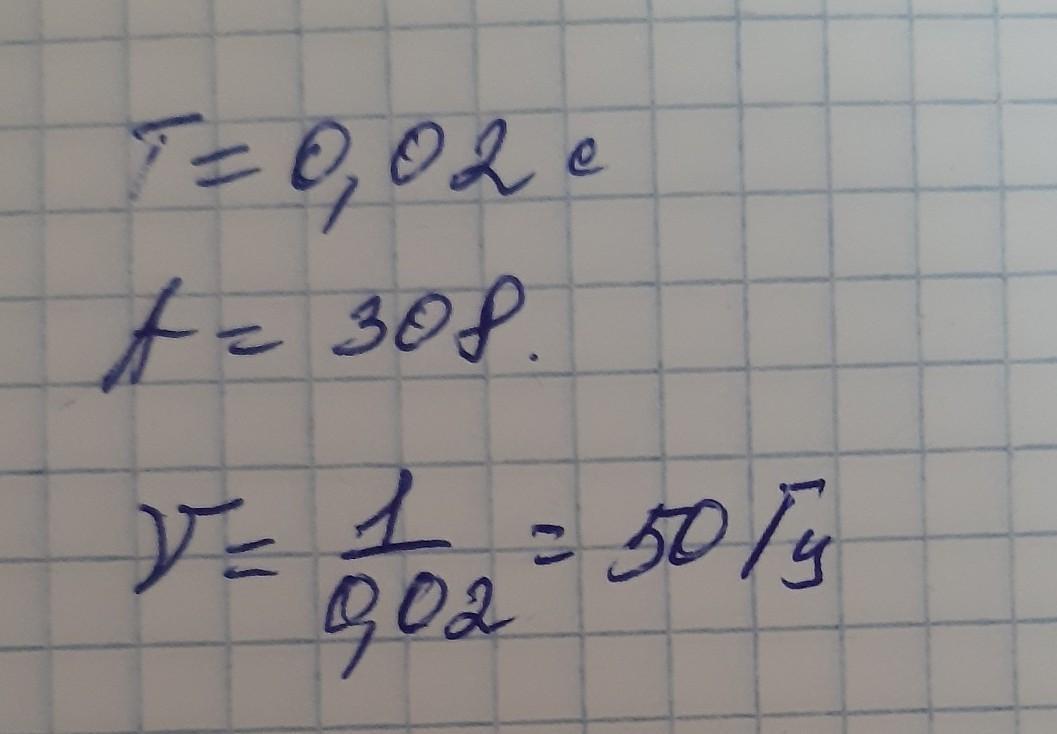 T = 0,02 с
A = 30 В.
ν = 1/0,02 = 50 Гц